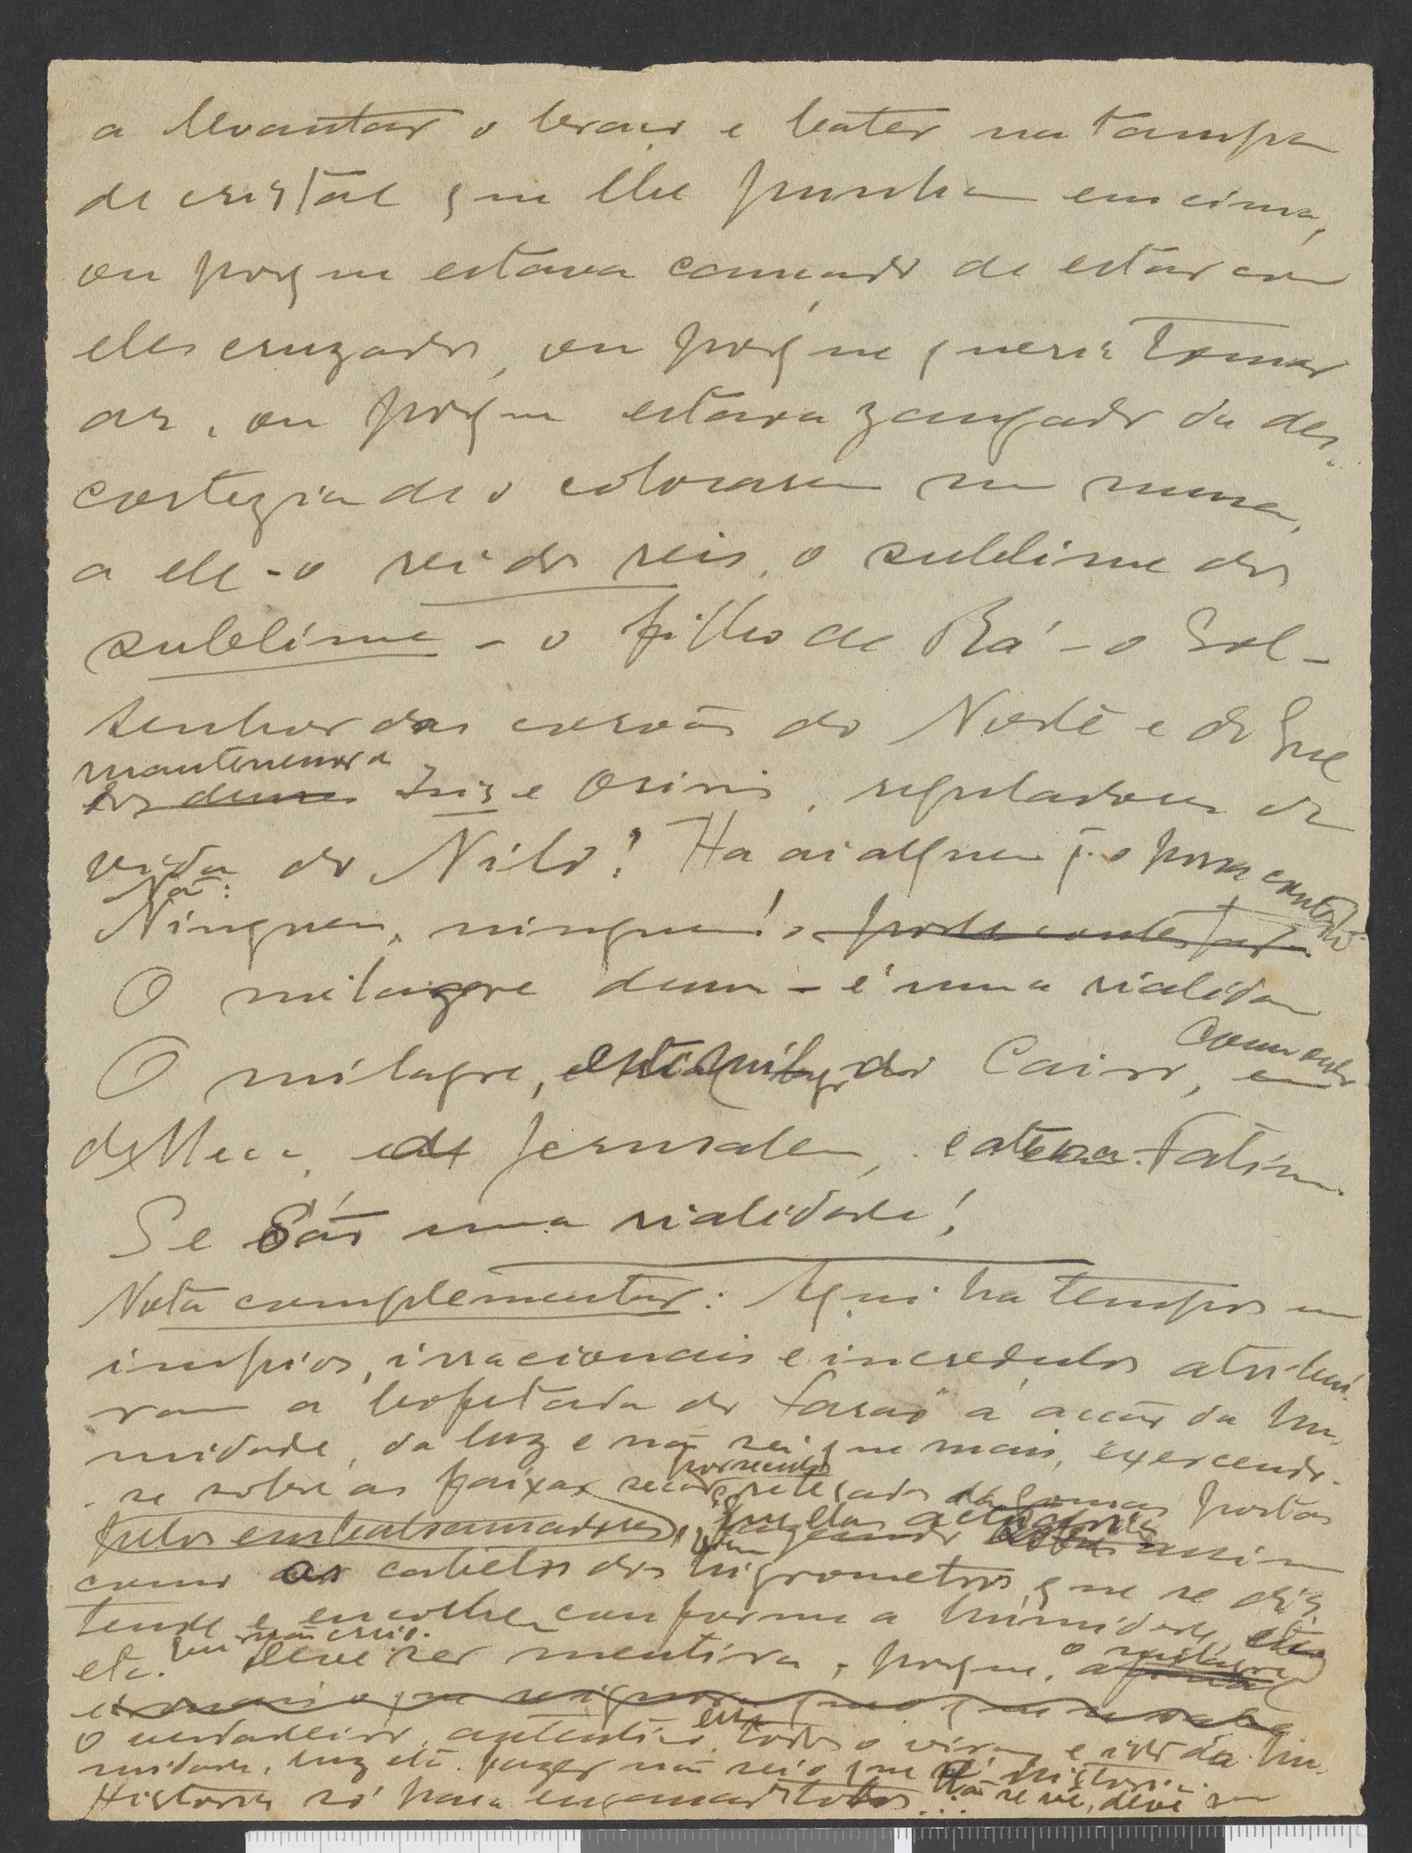 a levantar o braço e bater na tampa
de cristal que lhe punham em cima,
ou porque estava cansado de estar com
eles cruzados, ou porque queria tomar
ar, ou porque estava zangado da des-
cortezia de o colocarem no museu,
a ele - o rei dos reis, o sublime dos
sublime - o filho de Rá - o Sol -
senhor das coroas do Norte e do Sul
mantenedora
dos deuses Isis e Osiris, reguladores da
vida do Nilo! Ha ai alguem q. o possa contestar
Não:
Ninguem, ninguem! pode contestar.
O milagre deu-se é uma rialidade
O milagre, este milagre do Cairo, como os
de Meca, de Jerusalem, e até o da Fatima.
Se são uma rialidade!
Nota complementar: Aqui ha tempos uns
impios, irracionais e incredulos atribui-
ram a bofetada do faraó á acção da hu-
midade, da luz e não sei que mais, exercendo-
se sobre as faixas resequidas das gomas postas
pelos embalsamadores, assim
como os cabelos dos higrometros que se dis-
tende e encolhe conforme a humidade, etc.
etc. Eu não creio. Deve ser mentira, porque, o milagre
o verdadeiro, autentico, todos o viram e isto da hu-
midade, luz etc. fazer não sei o que é historia.
Historia só para enganar tolos... Não se vê, deve ser